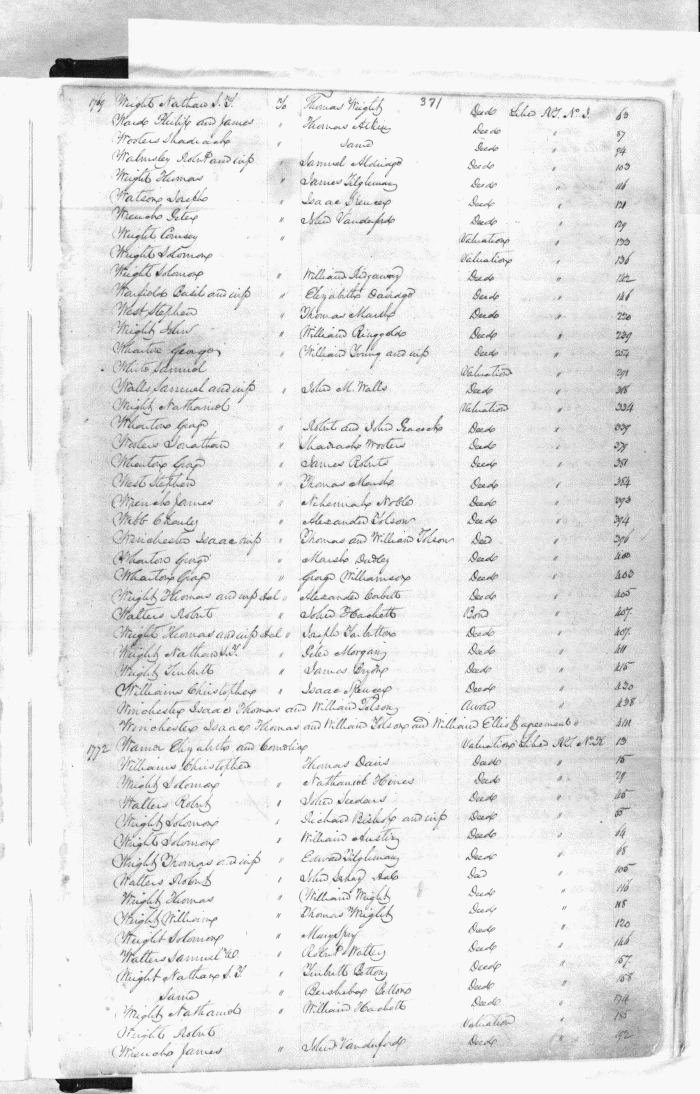 371
1769 Wright Nathan S. T. To Thomas Wright Deed Liber R.T. No. I. 63
Ward Philip and James " Thomas Atkin Deed " 57
Wooters Shadrach " same Deed " 94
Walmsley Robt and wife " Samuel Aldridge Deed " 103
Wright Thomas " James Tilghman Deed " 116
Watson Joseph " Isaac Spencer Deed " 121
Wrench Peter " John Vanderford Deed " 129
Wright Coursey " Valuation " 133
Wright Solomon Valuation " 136
Wright Solomon " William Ridgaway Deed " 142
Warfield Basil and wife " Elizabeth Davidge Deed " 146
West Stephen " Thomas Marsh Deed " 220
Wright John " William Ringgold Deed " 239
Wharton George " William Young and wife Deed " 254
White Samuel Valuation " 291
Walls Samuel and wife " John M. Walls Deed " 308
Wright Nathaniel Valuation " 334
Wharton Georg " Robert and John Peacock Deed " 339
Wooters Jonathan " Shadrach Wooters Deed " 371
Wharton Georg " James Roberts Deed " 381
West Stephen " Thomas Marsh Deed " 384
Wrench James " Nehemiah Noble Deed " 393
Webb Charley " Alexander Tolson Deed " 394
Winchester Isaac wife " Thomas and William Tolson Deed " 396
Wharton George " Marsh Dudley Deed " 400
Wharton Georg " George Williamson Deed " 403
Wright Thomas and wife &al " Alexander Corbett Deed " 405
Walters Robert " John Hackett Bond " 407
Wright Thomas and wife &al " Joseph Tarbutton Deed " 407
Wright Nathan S. T. " Peter Morgan Deed " 411
Wright Turbutt " James Bryon Deed " 415
Williams Christopher " Isaac Spencer Deed " 430
Winchester Isaac Thomas and William Tolson Award " 438
Winchester Isaac Thomas and William Tolson and William Ellis agreement " 441
1772 Warner Elizabeth and Cornelia Valuation Liber R.T. No. K 13
Williams Christopher Thomas Davis Deed " 15
Wright Solomon " Nathaniel Hines Deed " 29
Walters Robert " John Seeders Deed " 45
Wright Solomon " Richard Bishop and wife Deed " 55
Wright Solomon " William Austin Deed " 64
Wright Thomas and wife " Edward Tilghman Deed " 68
Walters Robert " John &al Deed " 105
Wright Thomas " William Wright Deed " 116
Wright William " Thomas Wright Deed " 118
Wright Solomon " Mary Spry Deed " 120
Walters Samuel " Robert Walters Deed " 146
Wright Nathan S. T. " Turbutt Betton Deed " 157
Same " Bershaba Betton Deed " 158
Wright Nathaniel " William Hackett Deed " 174
Wright Robert Valuation " 185
Wrench James " John Vanderford Deed " 192